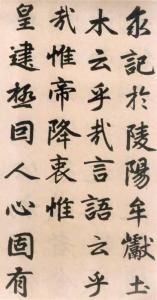 永記於陵陽牟巘土
木云乎哉言語云乎
哉惟帝降衷惟
皇建極回人心固有